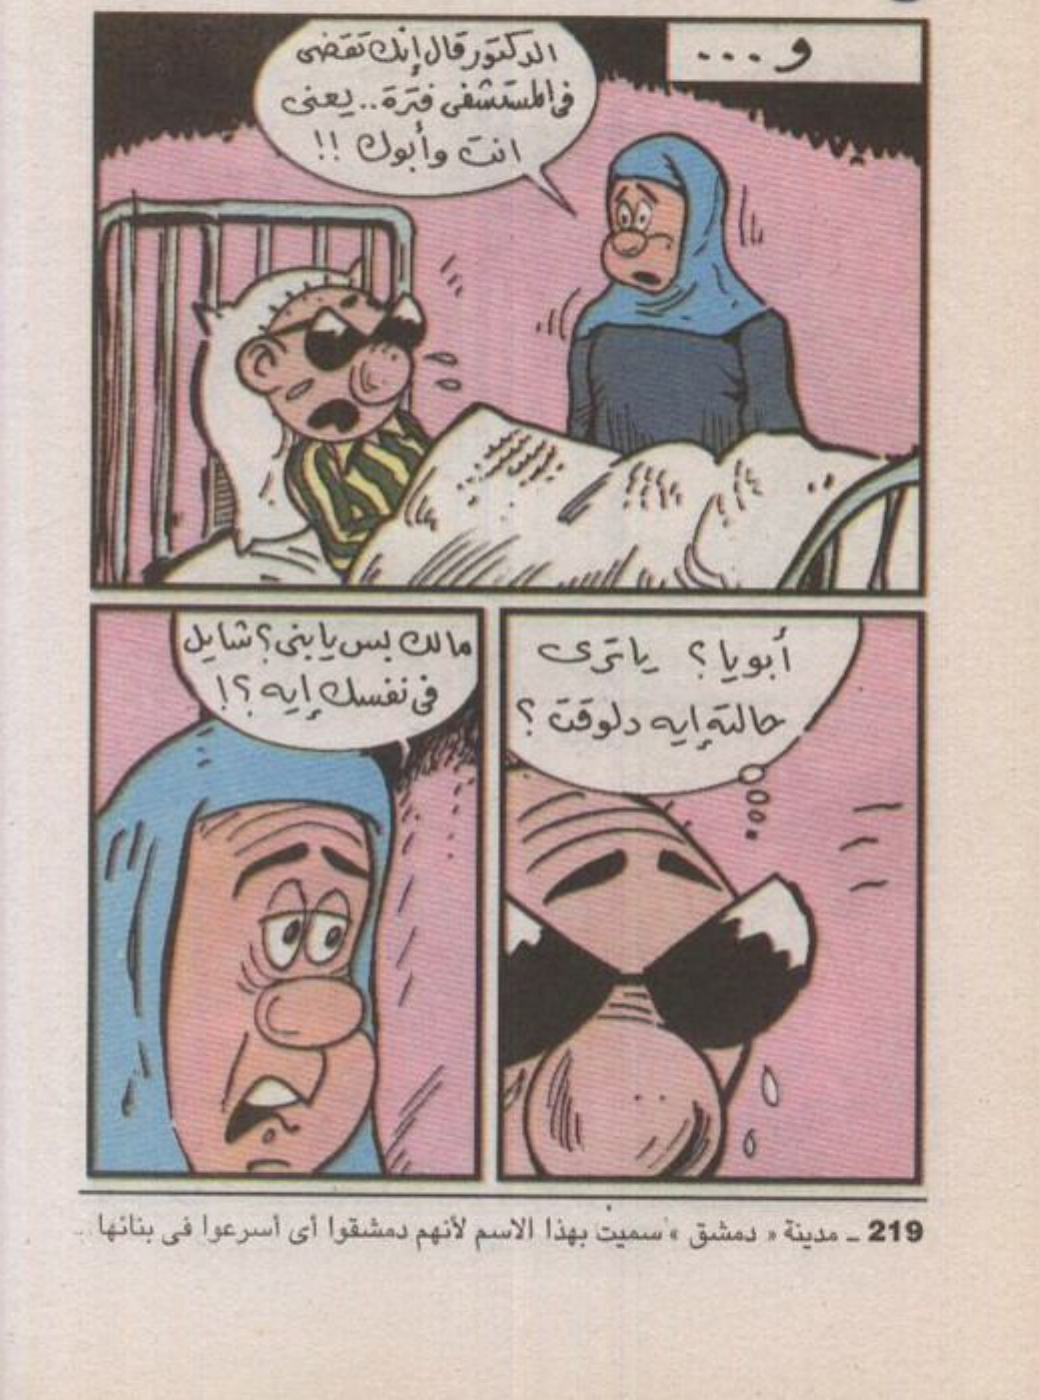 و...
الدكتور قال إنك تقضى
فى المستشفى فترة.. يعنى
انت وأبوك !!
أبويا؟ ياترى
حالته إيه دلوقت؟
مالك بس يا بنى؟ شايل
فى نفسك إيه؟!
219 ـ مدينة « دمشق » سميت بهذا الاسم لأنهم دمشقوا أى أسرعوا فى بنائها ..